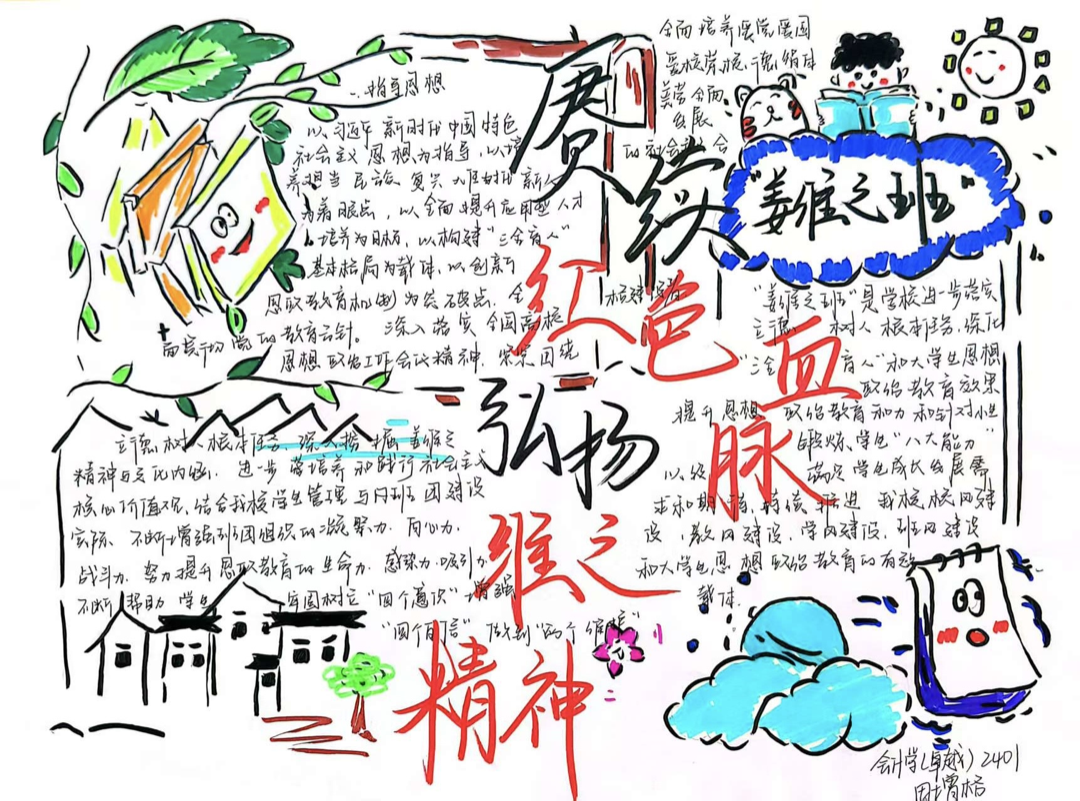 赓续
红色
血
脉
弘扬
维之
精神
指导思想
以习近平新时代中国特色
社会主义思想为指导，以培
养担当民族复兴大任时代新人
为着眼点，以全面提升应用型人才
培养为目标，以构建“三全育人”
基本格局为载体，以创新
思政教育机制为突破点，全
面贯彻党的教育方针。深入落实全国高校
思想政治工作会议精神，紧紧围绕
立德树人根本任务，深入挖掘姜维之
精神与文化内涵，进一步 培养和践行社会主义
核心价值观，结合我校学生管理与 班团建设
实际，不断增强班团组织的凝聚力、向心力、
战斗力，努力提升思政教育的生命力、感染力、吸引力
不断帮助学生 牢固树立“四个意识”增强
“四个自信”做到“两个维护”
全面培养爱党爱国
爱校荣校，德智体
美劳全面
发展
的社会 合
格建设者
“姜维之班”
“姜维之班”是学校进一步落实
立德 树人根本任务，深化
“三全 育人”和大学生思想
政治教育效果
提升思想 政治教育 和力和针对性
锻炼学生“八大能力”
以 满足学生成长发展需
求和期待，持续推进我校校风建
设、教风建设、学风建设、班风建设
和大学生思想政治教育的有效
载体.
会计学(卓越)2401
田增格